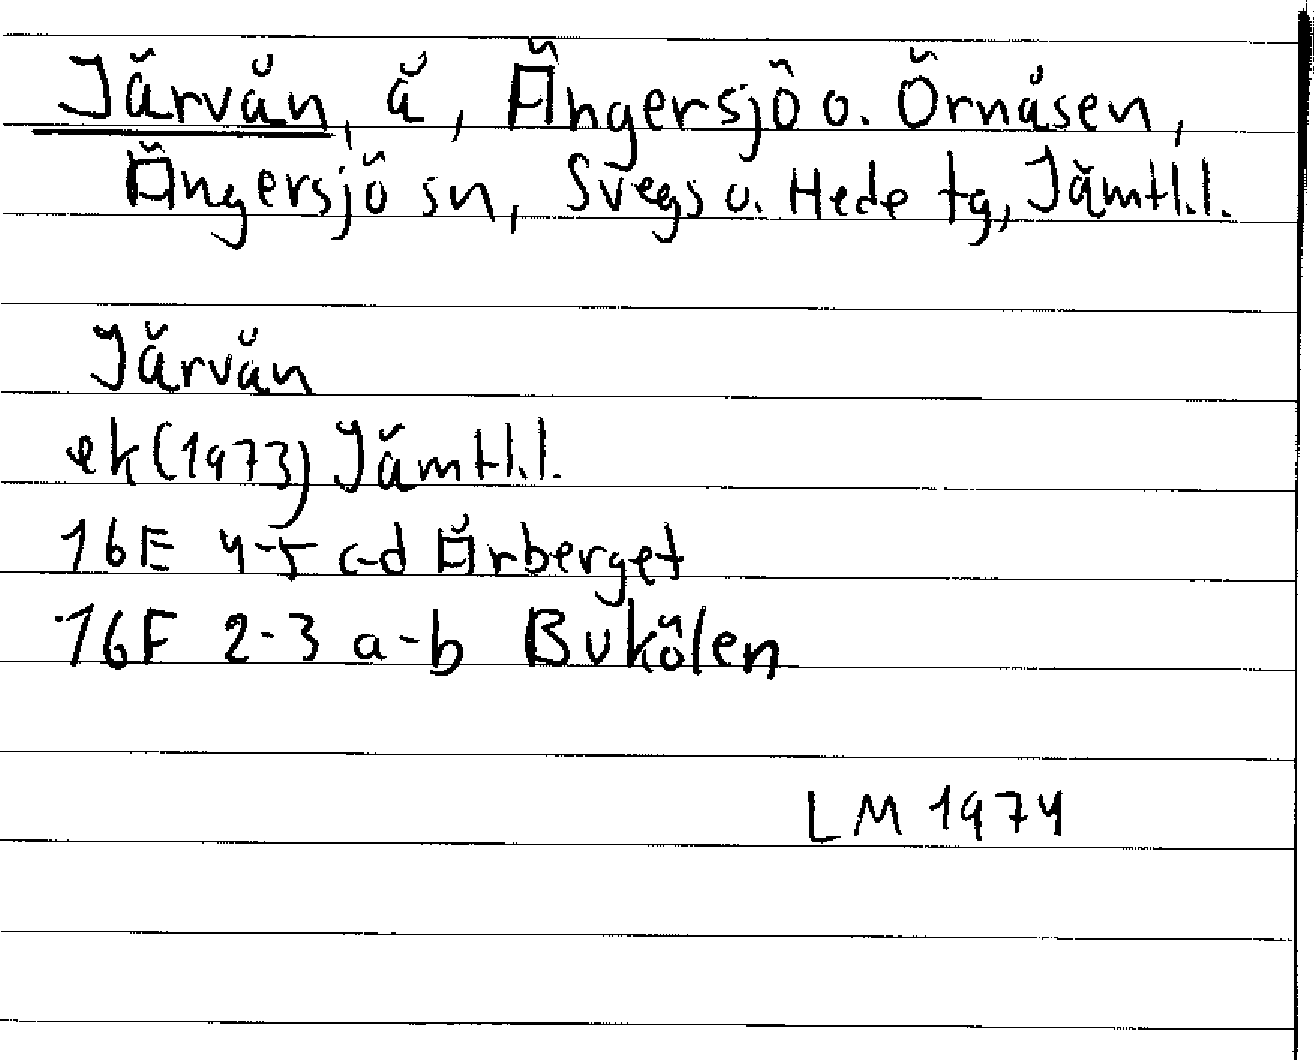 Järvån, å, Ängersjö o. Örnåsen,
Ängersjö sn, Svegs o. Hede tg, Jämtl.l.
Järvån
ek(1973) Jämtl.l.
16E 4-5 c-d Ärberget
16F 2-3 a-b Bukölen
LM 1974